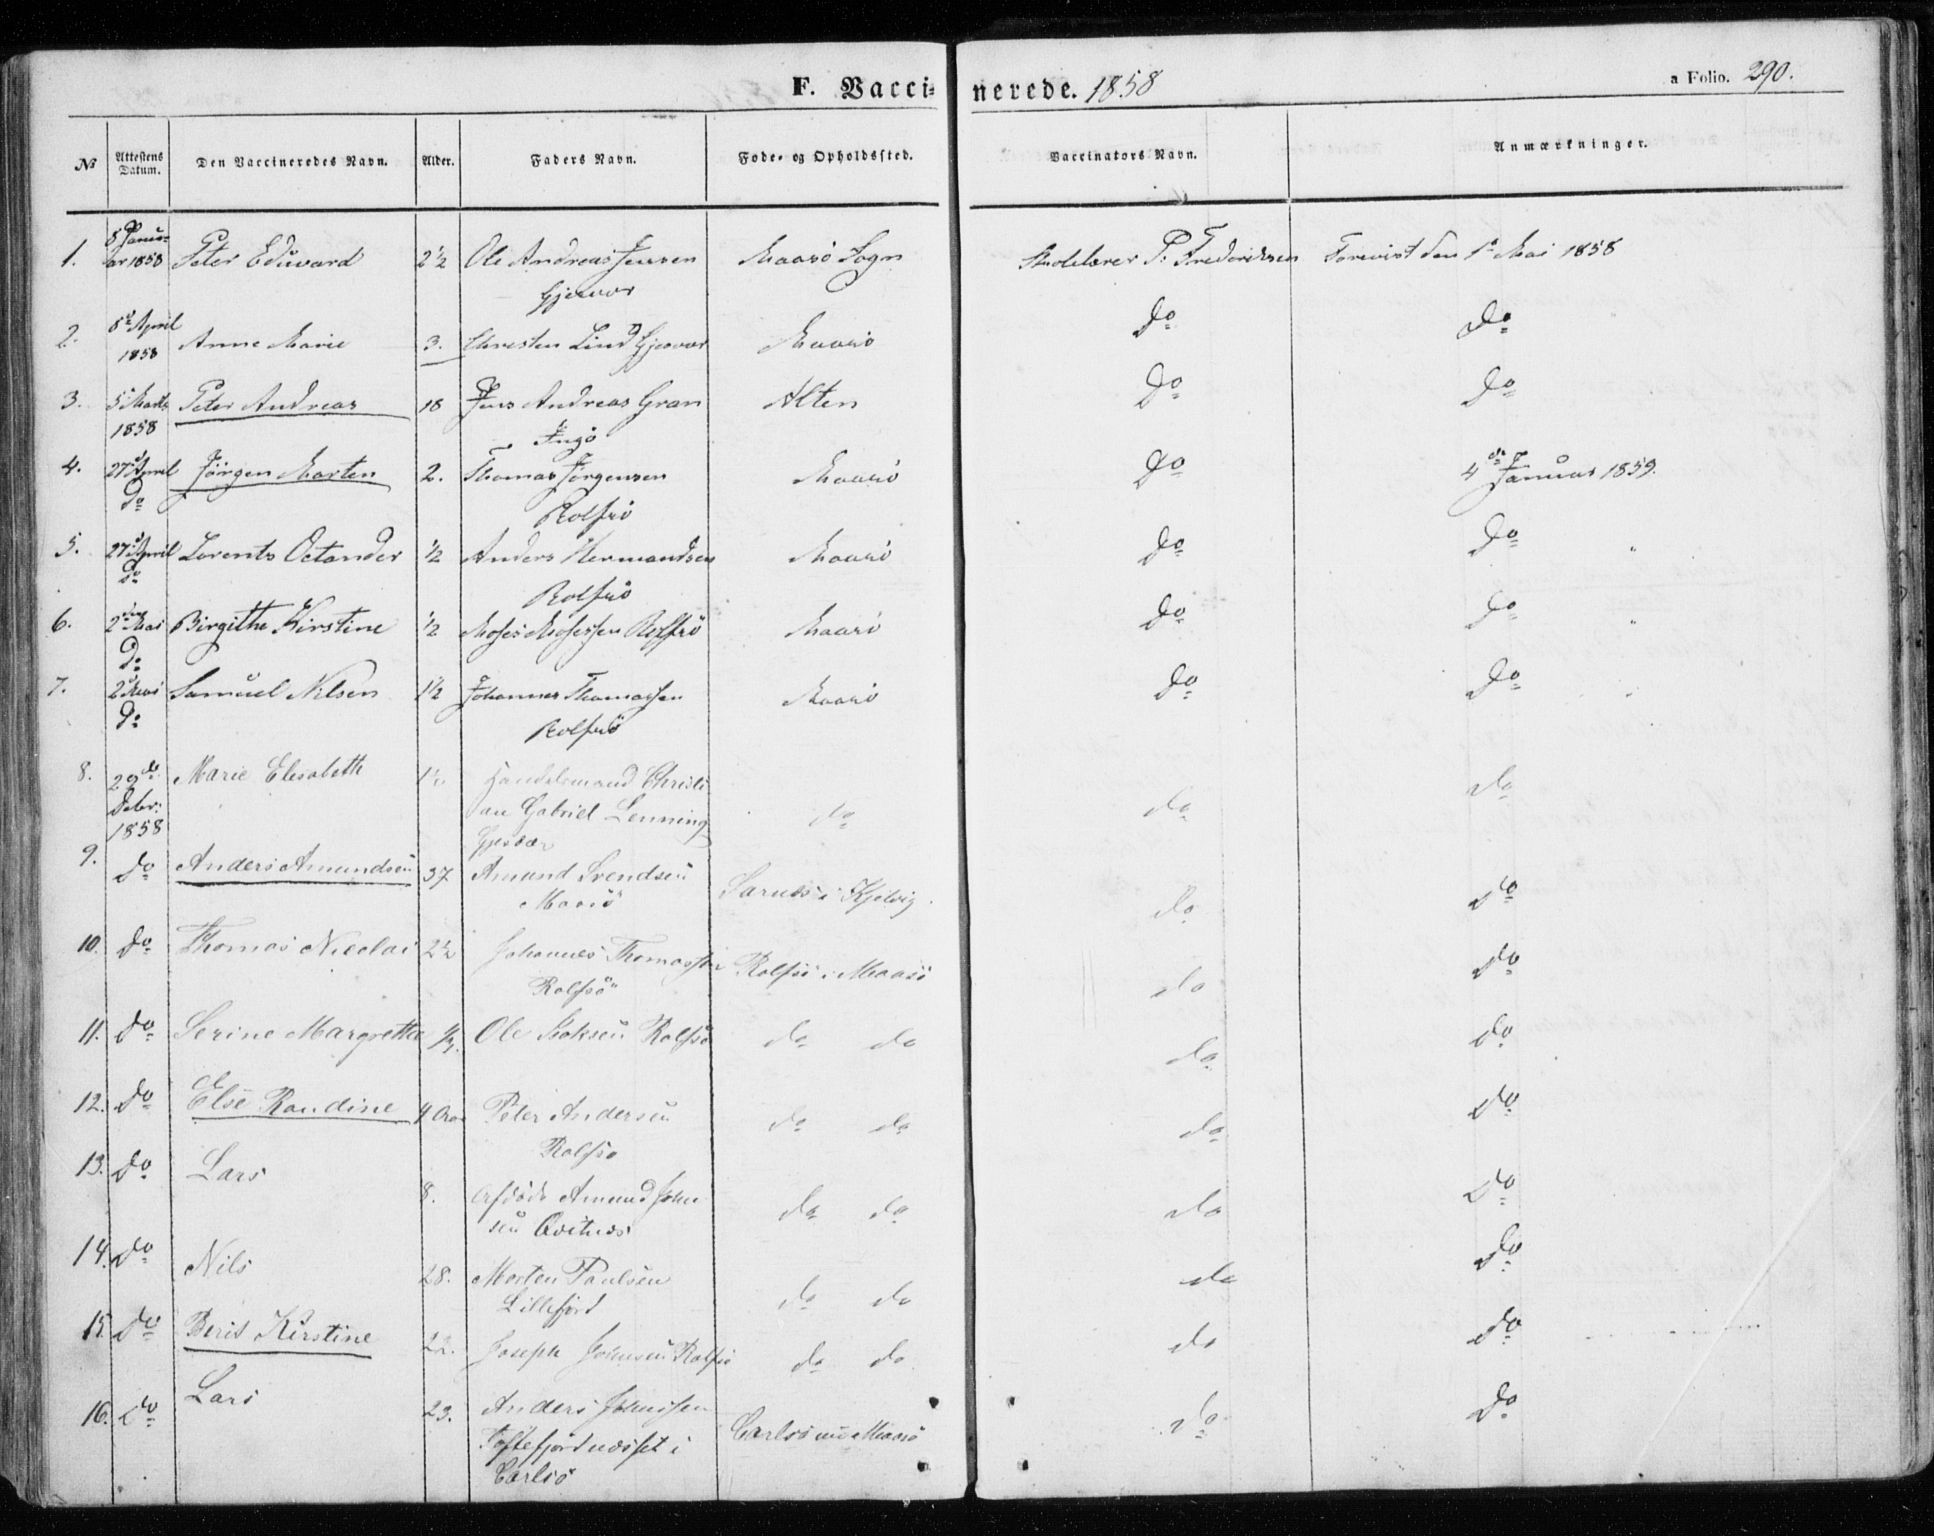 F. Vaccinerede. 1858
a Folio. 290.
No Attestens Datum. Den Vaccineredes Navn. Alder. Faders Navn. Føde- og Opholdssted. Vaccinators Navn. Anmærkninger.
1. 8 Januar 1858 Peter Edüvard 2½ Ole Andreas Jensen Gjesvær Maasö Sogn Skolelærer P. Frederiksen Forevist den 1ste Mai 1858
2. 8de April 1858 Anne Marie 3. Christen Lind Gjesvær Maasö Do Do
3. 5 Marts 1858 Peter Andreas 18 Jens Andreas Gran Ingö Alten Do Do
4. 27 April do Jörgen Morten 2. Thomas Jörgensen Rolfsö Maasö Do 4de Januar 1859.
5. 27 April do Lorents Octander ½ Anders Hermandsen Rolfsö Maasö Do Do "
6. 2den Mai Do Birgithe Kirstine ½ Moses Mosessen Rolfsö Maasö Do Do "
7. 2 Mai Do Samüel Nilsen 1½ Johannes Thomassen Rolfsö Maasö Do Do "
8. 29de Debr: 1858 Marie Elisabeth 1½ Handelsmand Christian Gabriel Lenning Gjesvær do do do
9. Do Anders Amundsen 37 Amund Svendsen Maasö Sarnes i Kjelvig. do Do
10. Do Thomas Nicolai 2½ Johannes Thomassen Rolfsö Rolfsö i Maasö do Do
11. Do Serine Margrethe Ole Rolfsö do do do do
12. Do Else Randine 4 Peter Andersen Rolfsö do do do Do
13. Do Lars 8. Afdöde Amund Johnsen do do do Do
14. Do Nils 28. Morten Paulsen Lillefjord do do do Do
15. Do Berit Kirstine 22. Joseph Johnsen Rolfsö do do do Do
16. Do Lars 23. Anders Johnssen Toftefjordnæsset i Carlsö Carlsö Maasö do Do